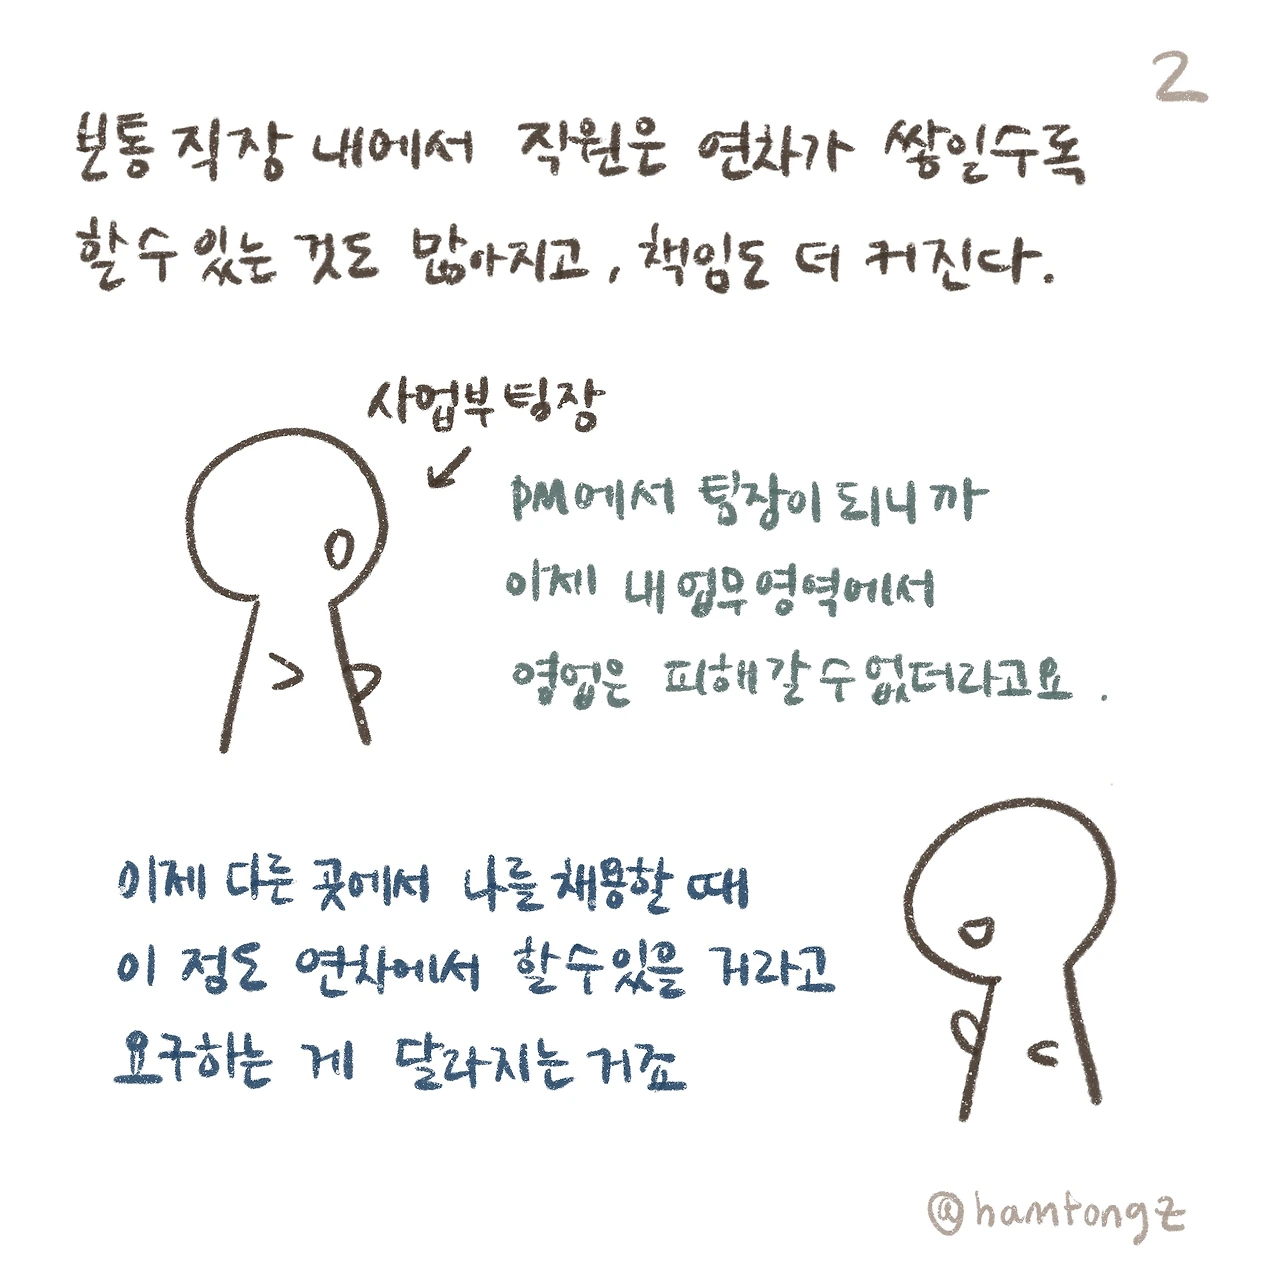 2
보통 직장 내에서 직원은 연차가 쌓일수록
할 수 있는 것도 많아지고, 책임도 더 커진다.
사업부 팀장
PM에서 팀장이 되니까
이제 내 업무 영역에서
영업은 피해갈 수 없더라고요.
이제 다른 곳에서 나를 채용할 때
이 정도 연차에서 할 수 있을 거라고
요구하는 게 달라지는 거죠
@hamtongz